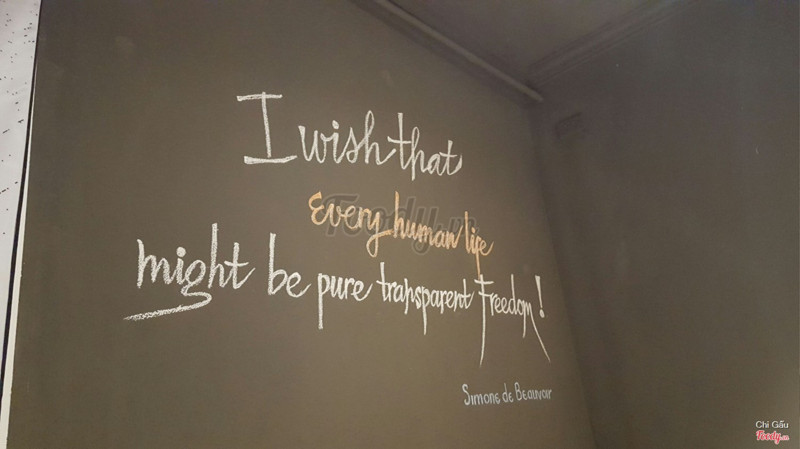 I wish that
Every human life
might be pure transparent Freedom!
Simone de Beauvoir
Foody.vn
Chi Gấu
Foody.vn